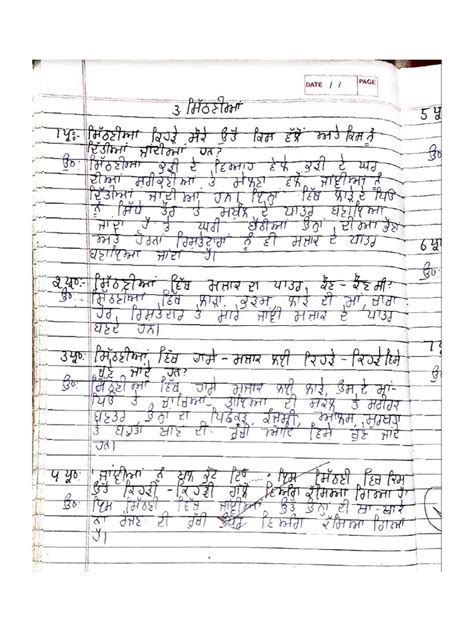 DATE / /
PAGE
3 ਸਿੱਠਣੀਆਂ
5 ਪ੍ਰ
1 ਪ੍ਰ:- ਸਿੱਠਣੀਆਂ ਕਿਹੜੇ ਮੌਕੇ ਉੱਤੇ ਕਿਸ ਵੱਲੋਂ ਅਤੇ ਕਿਸ ਨੂੰ
ਦਿੱਤੀਆਂ ਜਾਂਦੀਆਂ ਹਨ?
ਉ:- ਸਿੱਠਣੀਆਂ ਕੁੜੀ ਦੇ ਵਿਆਹ ਵੇਲੇ ਕੁੜੀ ਦੇ ਘਰ
ਉ:
ਦੀਆਂ ਤੇ ਮੇਲਣਾਂ ਵੱਲੋਂ ਜਾਂਞੀਆਂ ਨੂੰ
ਦਿੱਤੀਆਂ ਜਾਂਦੀਆਂ ਹਨ। ਇਨ੍ਹਾਂ ਵਿੱਚ ਲਾੜੇ ਦੇ ਪਿਓ
ਨੂੰ ਸਿੱਧੇ ਤੌਰ ਤੇ ਮਖੌਲ ਦਾ ਪਾਤਰ ਬਣਾਇਆ
ਜਾਂਦਾ ਹੈ ਤੇ ਘਰੀਂ ਬੈਠੀਆਂ ਉਨ੍ਹਾਂ ਦੀਆਂ
ਅਤੇ ਹੋਰਨਾਂ ਰਿਸ਼ਤੇਦਾਰਾਂ ਨੂੰ ਵੀ ਮਜ਼ਾਕ ਦੇ ਪਾਤਰ
6 ਪ੍ਰ
ਬਣਾਇਆ ਜਾਂਦਾ ਹੈ।
2 ਪ੍ਰ:- ਸਿੱਠਣੀਆਂ ਵਿੱਚ ਮਜ਼ਾਕ ਦਾ ਪਾਤਰ ਕੌਣ-ਕੌਣ ਸੀ?
ਉ:
ਉ:- ਸਿੱਠਣੀਆਂ ਵਿੱਚ ਲਾੜਾ, ਕੁੜਮ, ਲਾੜੇ ਦੀ ਮਾਂ, ਚਾਚਾ
ਹੋਰ ਰਿਸ਼ਤੇਦਾਰ ਤੇ ਸਾਰੇ ਜਾਂਞੀ ਮਜ਼ਾਕ ਦੇ ਪਾਤਰ
ਬਣਦੇ ਹਨ।
3 ਪ੍ਰ:- ਸਿੱਠਣੀਆਂ ਵਿੱਚ ਹਾਸੇ-ਮਜ਼ਾਕ ਲਈ ਕਿਹੜੇ-ਕਿਹੜੇ ਵਿਸ਼ੇ
7
ਚੁਣੇ ਜਾਂਦੇ ਹਨ?
ਉ:- ਸਿੱਠਣੀਆਂ ਵਿੱਚ ਹਾਸੇ ਮਜ਼ਾਕ ਲਈ ਲਾੜੇ, ਉਸ ਦੇ ਮਾਂ-
ਪਿਓ ਤੇ ਦੀ ਸ਼ਕਲ ਤੇ ਸਰੀਰਕ
ਬਣਤਰ ਉਨ੍ਹਾਂ ਦਾ ਕੰਜੂਸੀ,
ਤੇ ਬਹੁਤਾ ਖਾਣ ਦੀ ਰੁਚੀ ਆਦਿ ਵਿਸ਼ੇ ਚੁਣੇ ਜਾਂਦੇ
ਹਨ।
4 ਪ੍ਰ:- ਜਾਂਞੀਆਂ ਨੂੰ ਇਸ ਸਿੱਠਣੀ ਵਿੱਚ ਕਿਸ
ਉੱਤੇ ਕਿਹੜੀ-ਕਿਹੜੀ ਗੱਲੋਂ ਵਿਅੰਗ ਕੱਸਿਆ ਗਿਆ ਹੈ?
ਉ:- ਇਸ ਸਿੱਠਣੀ ਵਿੱਚ ਜਾਂਞੀਆਂ ਉੱਤੇ ਉਨ੍ਹਾਂ ਦੀ ਖਾ-ਖਾਕੇ
ਨਾ ਰੱਜਣ ਦੀ ਰੁਚੀ ਉੱਪਰ ਵਿਅੰਗ ਕੱਸਿਆ ਗਿਆ
ਹੈ।